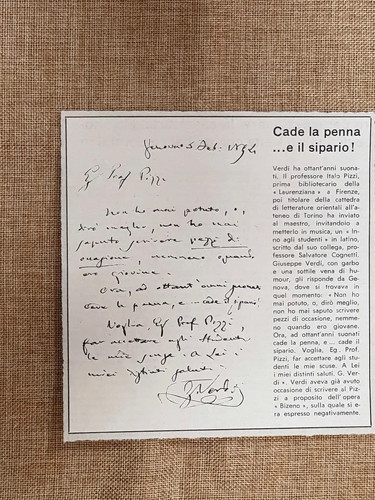 Genova 5 Feb.
Eg Prof Pizzi
Non ho mai potuto, o,
dirò meglio, non ho mai
saputo scrivere pezzi di
occasione, nemmeno quando
ero giovine.
Ora, ad ottant'anni
cade la penna, e... cade il sipario!
Voglia, Eg Prof Pizzi,
far accettare agli studenti
le mie scuse. A Lei i
miei distinti saluti
G. Verdi
Cade la penna
...e il sipario!
Verdi ha ottant'anni suona-
ti. Il professore Italo Pizzi,
prima bibliotecario della
« Laurenziana » a Firenze,
poi titolare della cattedra
di letterature orientali all'a-
teneo di Torino ha inviato
al maestro, invitandolo a
metterlo in musica, un « In-
no agli studenti » in latino,
scritto dal suo collega, pro-
fessore Salvatore Cognetti.
Giuseppe Verdi, con garbo
e una sottile vena di hu-
mour, gli risponde da Ge-
nova, dove si trovava in
quel momento: « Non ho
mai potuto, o, dirò meglio,
non ho mai saputo scrivere
pezzi di occasione, nemme-
no quando ero giovane.
Ora, ad ottant'anni suonati
cade la penna, e... cade il
sipario. Voglia, Eg. Prof.
Pizzi, far accettare agli stu-
denti le mie scuse. A Lei
i miei distinti saluti. G. Ver-
di ». Verdi aveva già avuto
occasione di scrivere al Piz-
zi a proposito dell'opera
« Bizeno », sulla quale si e-
ra espresso negativamente.